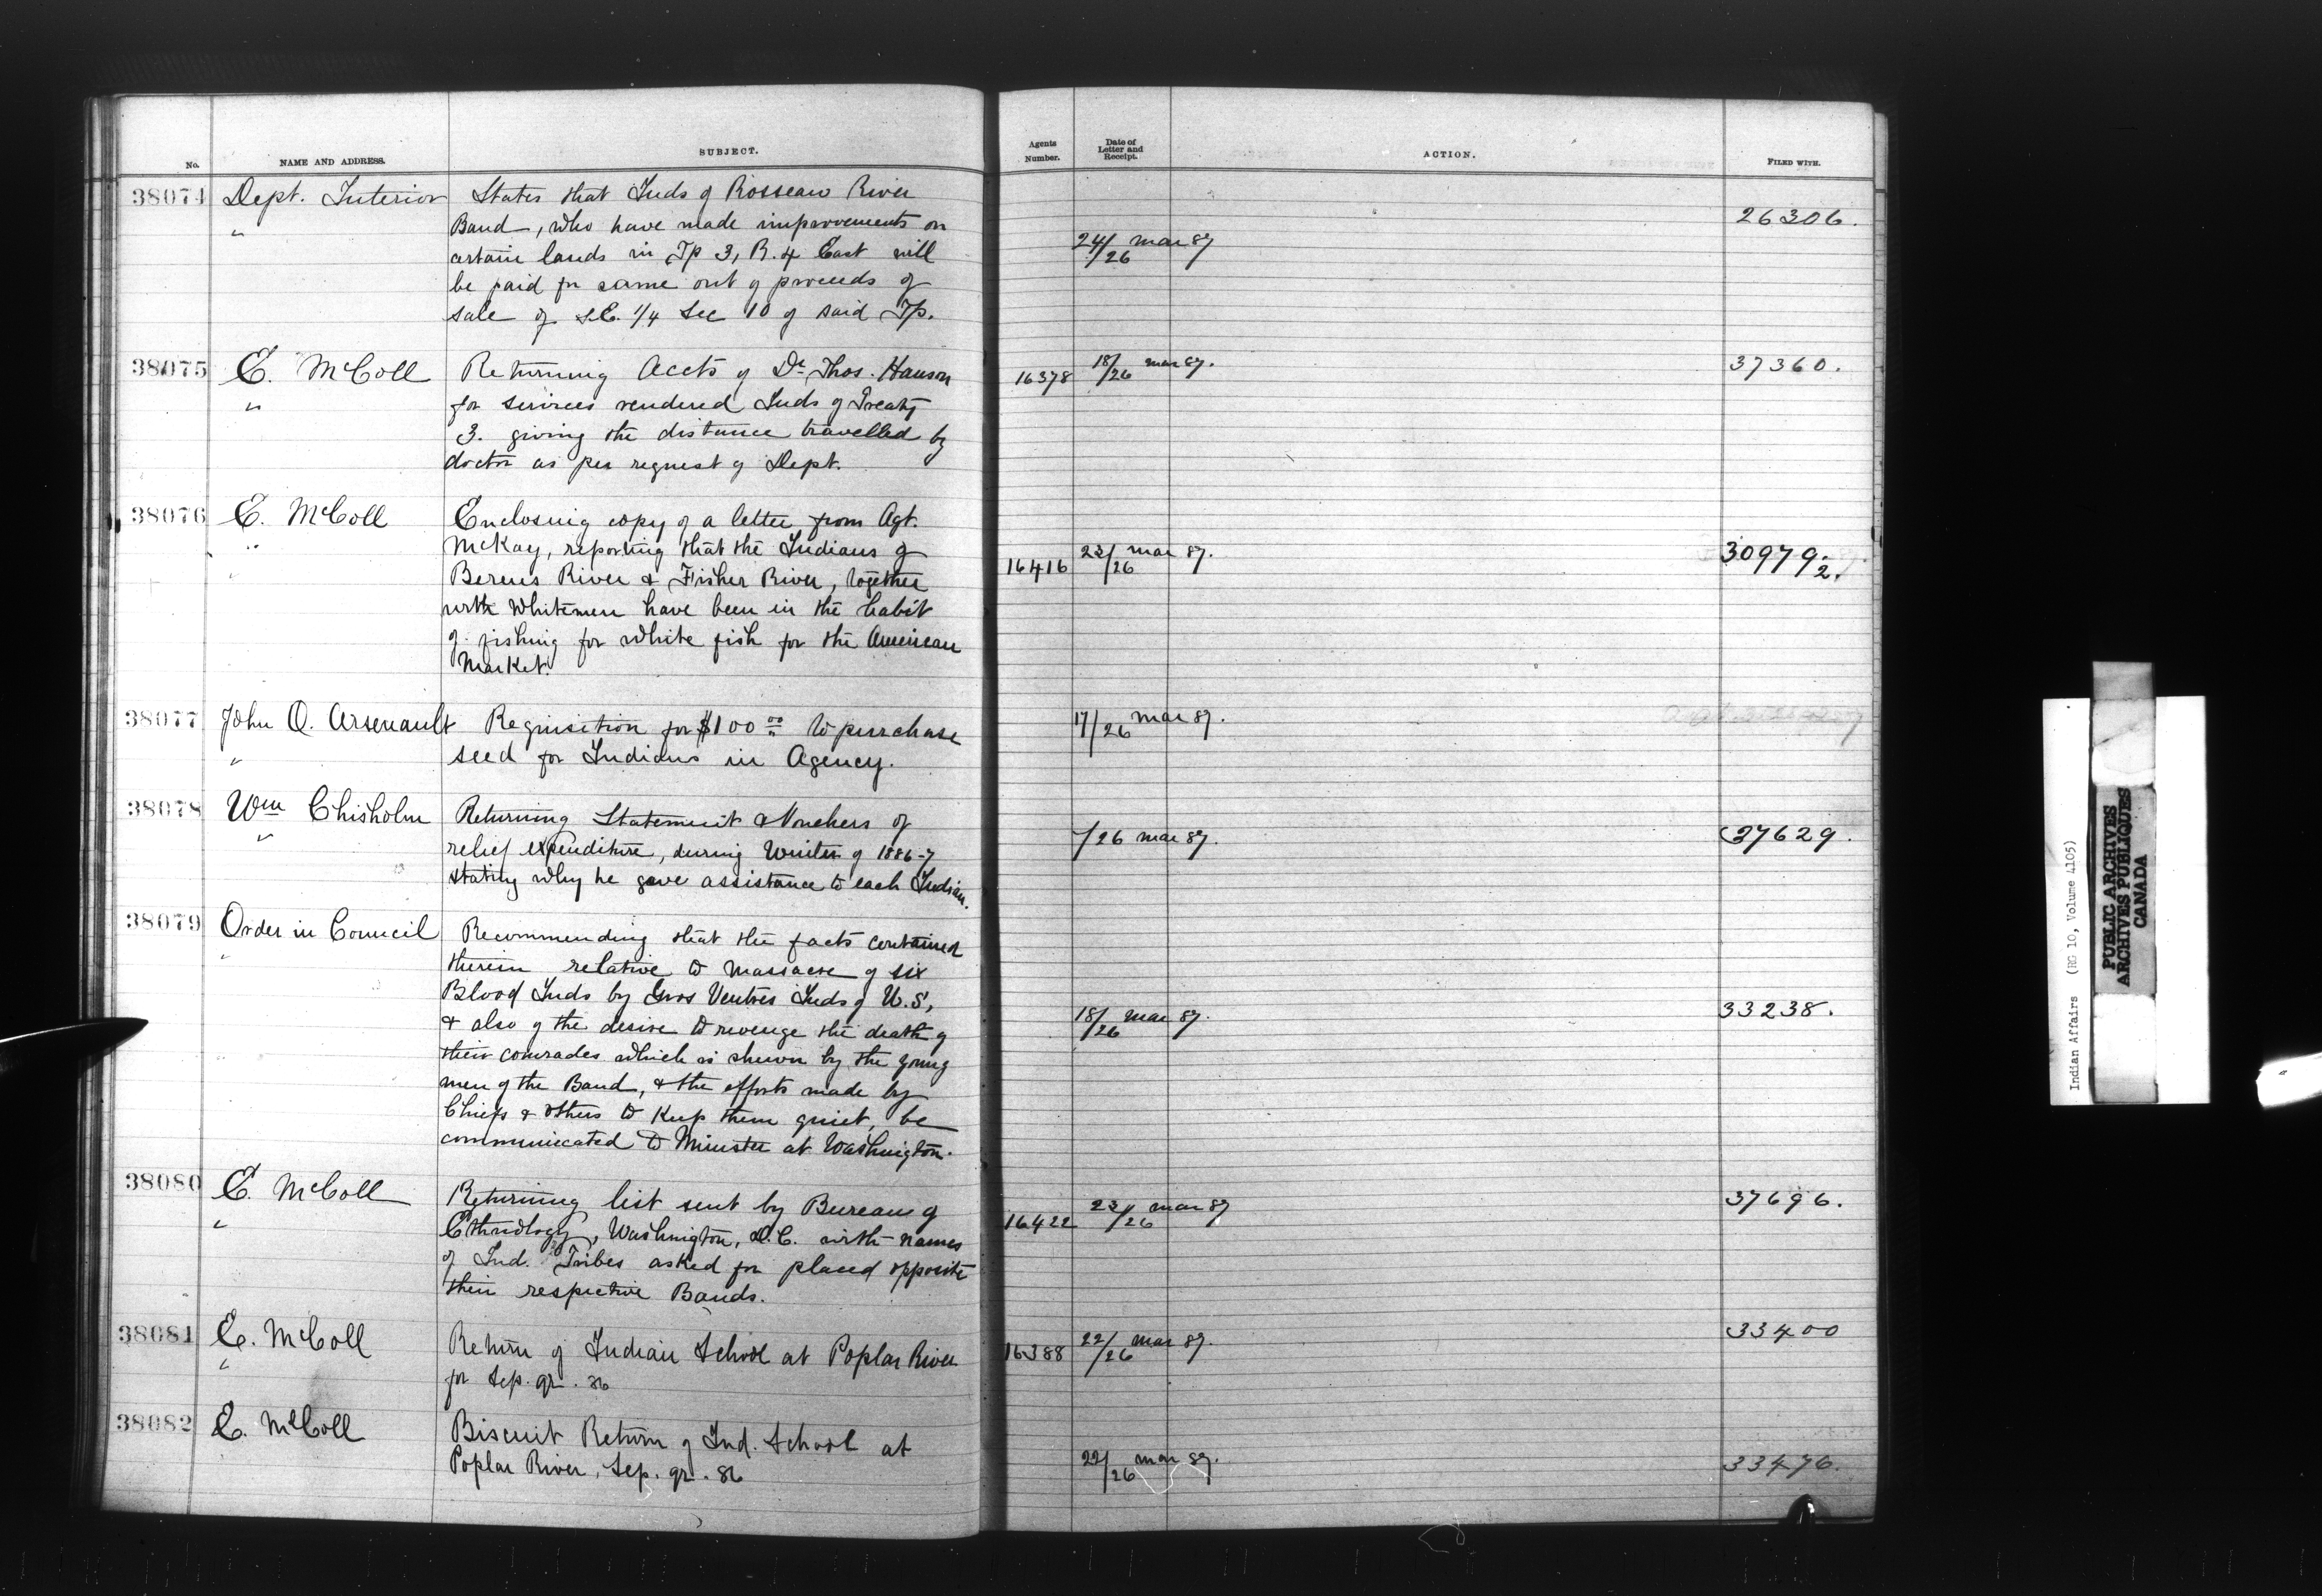 No.
NAME AND ADDRESS.
SUBJECT.
Agents
Number.
Date of
Letter and
Receipt.
ACTION.
FILED WITH.
38074 Dept. Interior States that Inds of Rosseau River
" Band, who have made improvements on
certain lands in Tp 3, R. 4 East will
be paid for same out of proceeds of
sale of S.E. 1/4 Sec 10 of said Tp.
24/26 Mar 87
26306.
38075 E. McColl Returning Accts of Dr. Thos. Hanson
" for services rendered Inds of Treaty
3. giving the distance travelled by
doctor as per request of Dept.
16378 18/26 Mar 87.
37360.
38076 E. McColl Enclosing copy of a letter from Agt.
" McKay, reporting that the Indians of
" Berens River & Fisher River, together
with Whitemen have been in the habit
of fishing for white fish for the American
Market.
16416 23/26 Mar 87.
30979-2.
38077 John O. Arsenault Requisition for $100 00 to purchase
" seed for Indians in Agency.
17/26 Mar 87.
38078 Wm Chisholm Returning Statement & Vouchers of
" relief expenditure, during Winter of 1886-7
stating why he gave assistance to each Indian.
/26 Mar 87.
37629.
38079 Order in Council Recommending that the facts contained
" therein relative to massacre of six
Blood Inds by Gros Ventres Inds of U.S,
& also of the desire to revenge the death of
their comrades which is shewn by the young
men of the Band, & the efforts made by
Chiefs & others to keep them quiet, be
communicated to Minister at Washington.
18/26 Mar 87.
33238.
38080 E. McColl Returning list sent by Bureau of
" Ethnology, Washington, D.C. with names
of Ind. Tribes asked for placed opposite
their respective Bands.
16422 23/26 Mar 87
37696.
38081 E. McColl Return of Indian School at Poplar River
" for Sep. qr. 86
16388 22/26 Mar 87.
33400
38082 E. McColl Biscuit Return of Ind. School at
Poplar River, Sep. qr. 86
22/26 Mar 87.
33476.
Indian Affairs (RG 10, Volume 4105)
PUBLIC ARCHIVES
ARCHIVES PUBLIQUES
CANADA